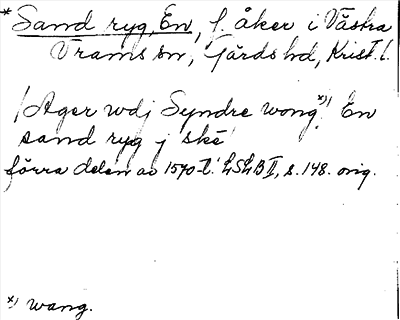 * Sand ryg, En, f. åker i Västra
Vrams sn, Gärds hd, Krist. l.
/Ager wdj Syndre wong *)/ En
sand ryg j ske
förra delen av 1570-t. LSLB II, s. 148. orig.
*) wang.